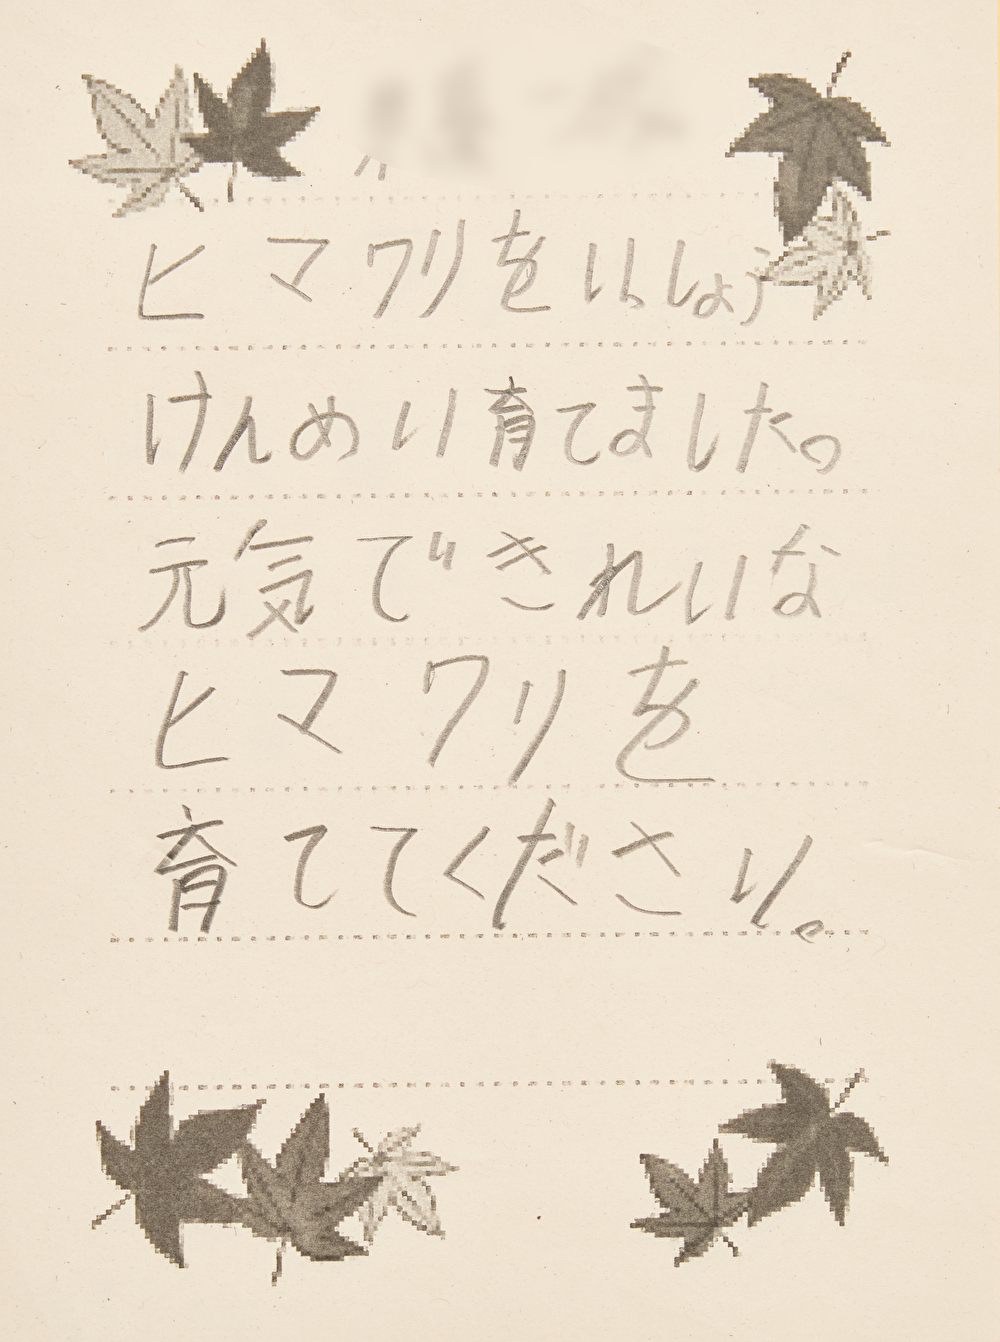 ヒマワリをいっしょう
けんめい育てました。
元気できれいな
ヒマワリを
育ててください。